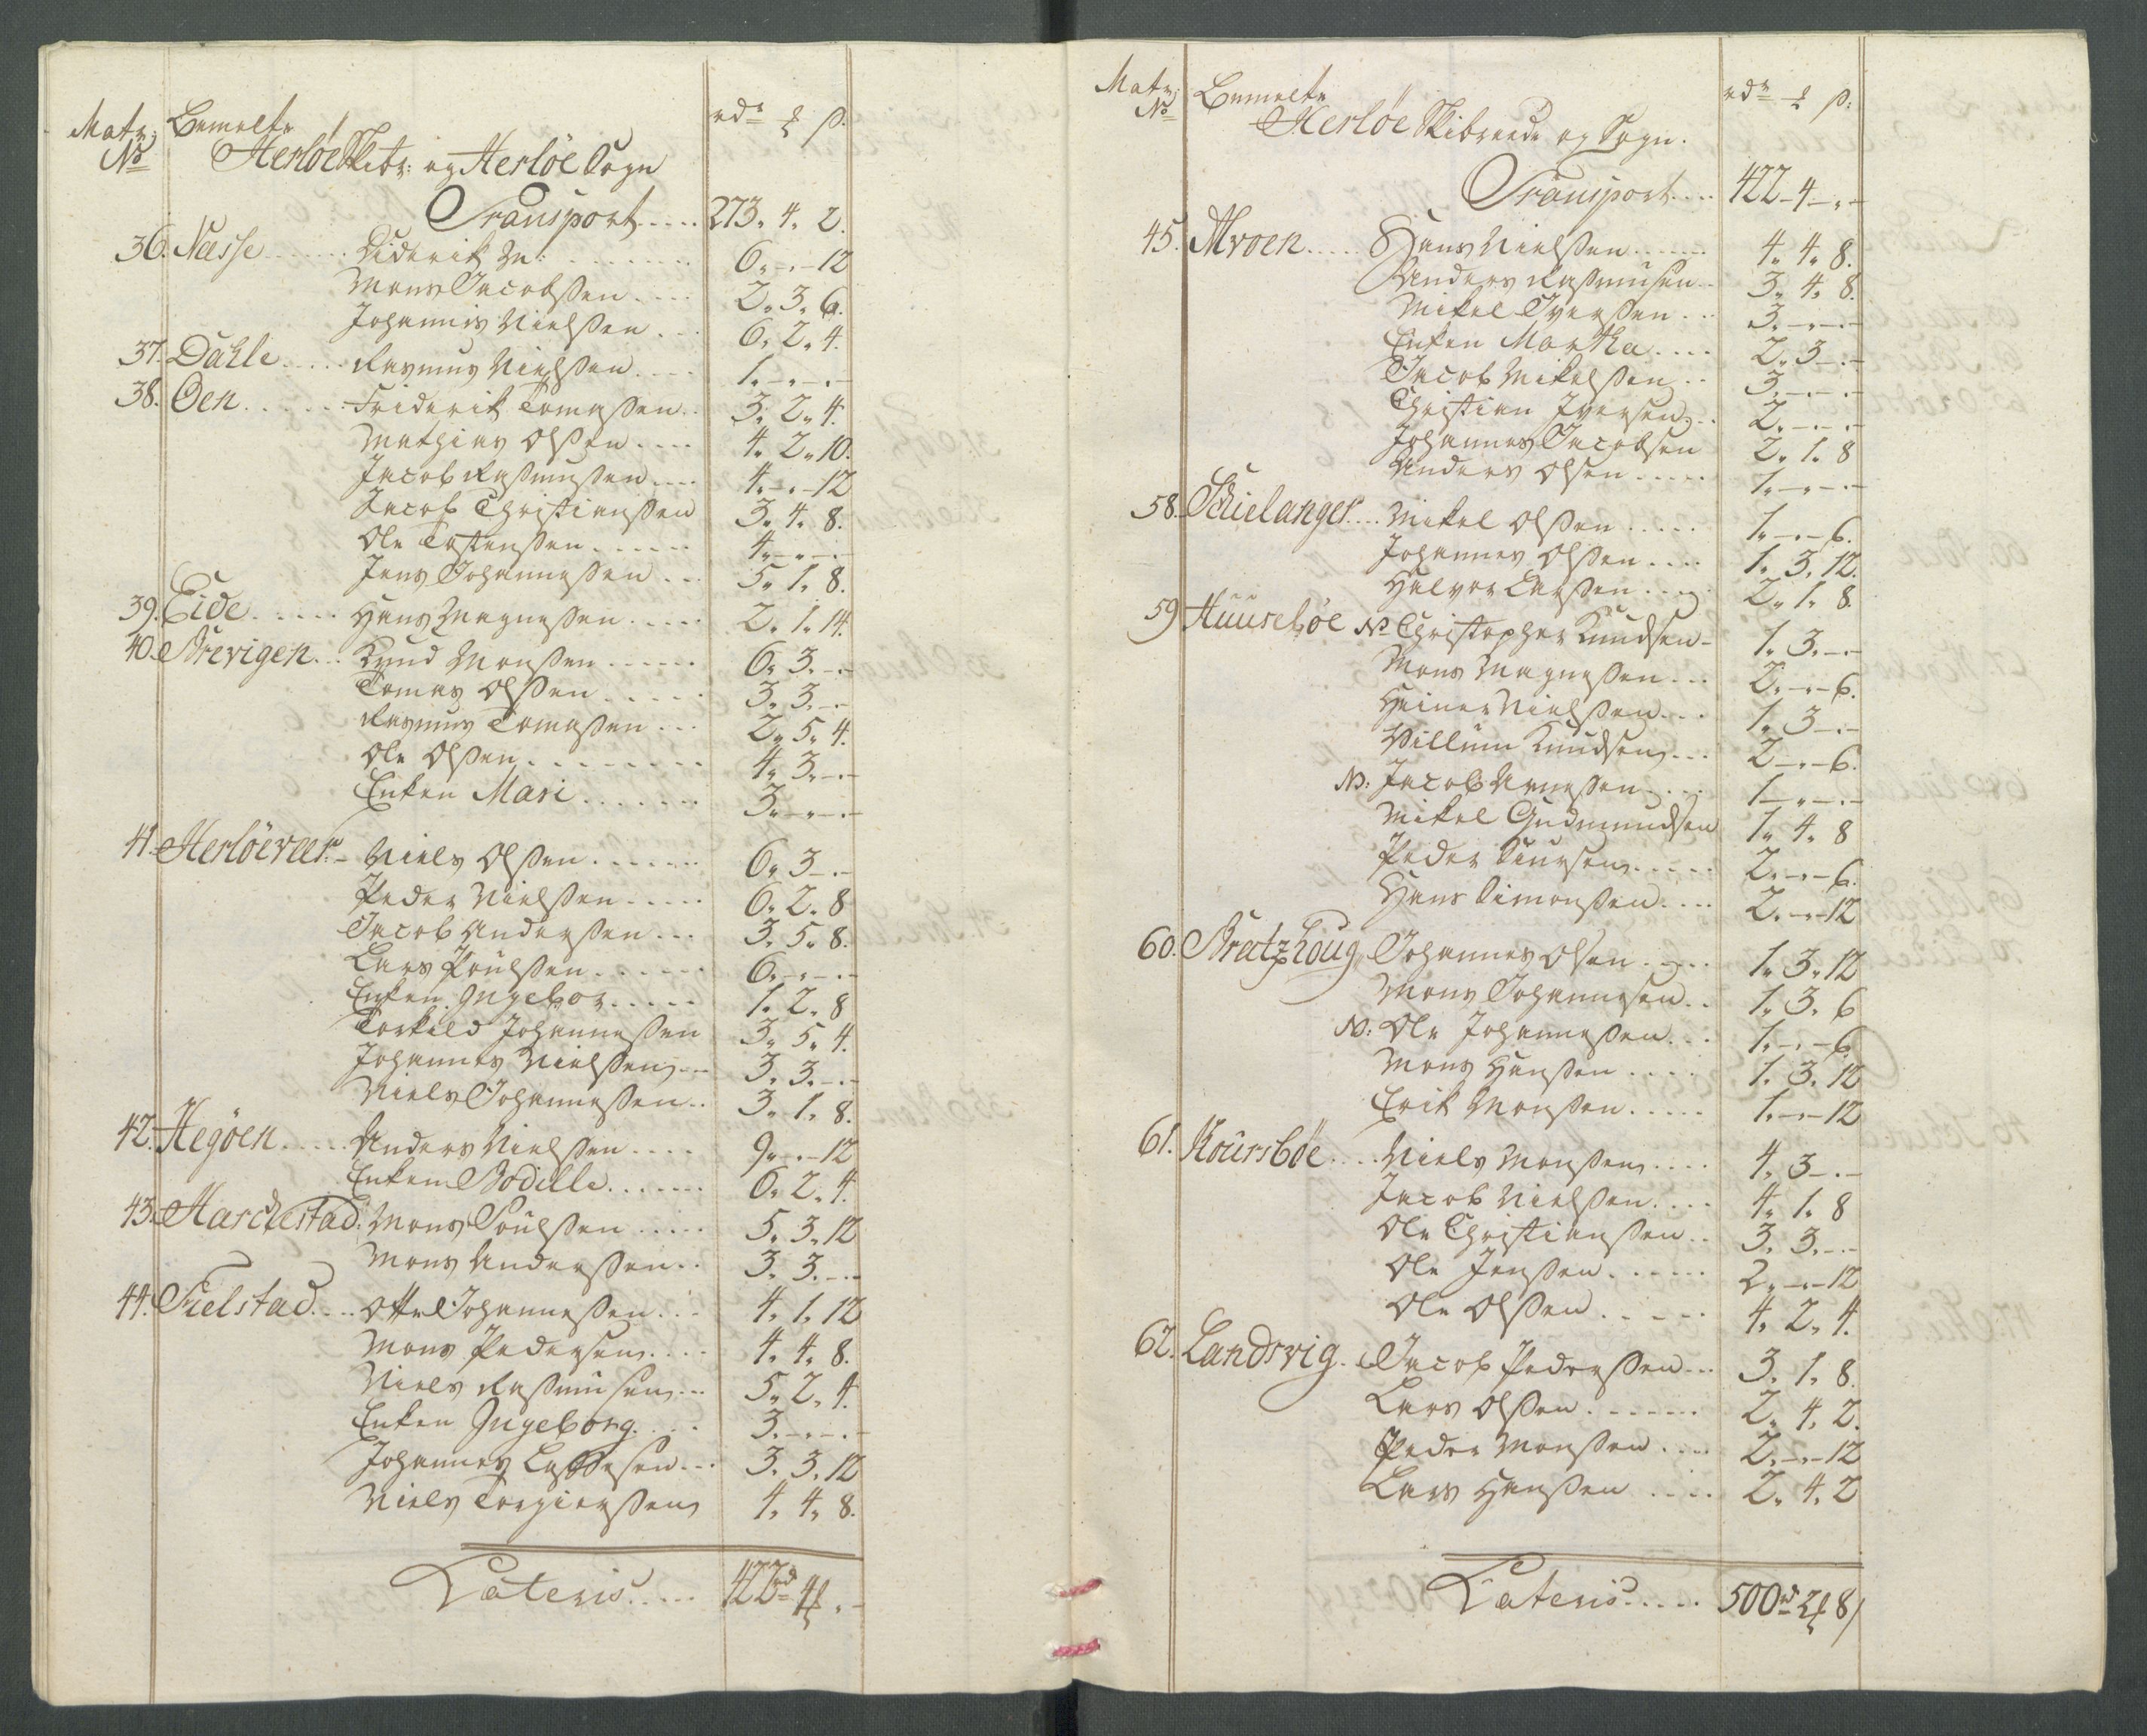 Matr: Bemelte rdr ₰ ß.
No Herlöe Skibr: og Herlöe Sogn
Transport.... 273. 4. 2.
36. Næsse...... Diderik M:........ 6. - . - 12
Mons Jacobssen.... 2. 3. 6.
Johannes Nielssen... 6. 2. 4.
37. Dahle..... Rasmus Nielssen.... 1. - . - . -
38. Oen...... Friderik Tomassen.. 3. 2. 4.
Mathias Olssen.... 4. 2. 10.
Jacob Rasmussen.... 4. - . - 12
Jacob Christianssen 3. 4. 8.
Ole Tostenssen...... 4. - . - . -
Jens Johannessen... 5. 1. 8.
39. Eide...... Hans Magnessen..... 2. 1. 14.
40. Brevigen... Knud Monssen...... 6. 3. - . -
Tomas Olssen..... 3. 3. - . -
Rasmus Tomassen... 2. 5. 4.
Ole Olssen........ 4. 3. - . -
Enken Mari....... 3. - . - . -
41. Herlöevær.- Niels Olssen....... 6. 3 - . -
Peder Nielssen..... 6. 2. 8
Jacob Anderssen... 3. 5. 8.
Lars Poulssen...... 6. - . - . -
Enken Ingebor..... 1. 2. 8
Torkild Johannessen 3. 5. 4.
Johannes Nielssen.-- 3. 3. - . -
Niels Johannessen.. 3. 1. 8.
42. Hegöen..... Anders Nielssen.... 9. - . - 12
Enken Bodille...... 6. 2. 4.
43. Hardestad: Mons Poulssen..... 5. 3. 12
Mons Anderssen.. 3. 3. - . -
44. Fielstad.... Otte Johannessen... 4. 1. 12
Mons Pedersen.... 4. 4. 8.
Niels Rasmusen... 5. 2. 4.
Enken Ingeborg.... 3. - . - . -
Johannes Lassesen... 3. 3. 12
Niels Torgierssen 4. 4. 8.
Lateris..... 422rd 4₰ . -
Matr: Bemelte rdr ₰ ß:
No Herlöe Skibreede og Sogn.
Transport.... 422 - 4 - . -
45. Mroen..... Hans Nielssen...... 4. 4. 8.
Anders Rasmusen.. 3. 4. 8.
Mikel Iverssen... 3. - . - . -
Enken Martha.... 2. 3 - . -
Jacob Mikelssen.. 3. - . - . -
Christian Iversen... 2. - . - . -
Johannes Jacobsen 2. 1. 8
Anders Olsen..... 1. - . - . -
58. Schielanger.... Mikel Olssen..... 1. - . - 6.
Johannes Olssen.... 1. 3. 12.
Halvor Larssen.... 2. 1. 8.
59 Huusebøe No Christopher Knudsen- 1. 3. - . -
Mons Magnessen... 2. - . - 6.
Heine Nielssen... 1. 3 - . -
Villum Knudsen... 2 - . - 6.
NB: Jacob Arnessen.... 1 - . - . -
Mikel Gudmundsen 1. 4. 8
Peder Siursen..... 2. - . - 6.
Hans Simonssen.... 2. - . - 12
60. Bratzhoug Johannes Olsen.... 1. 3. 12
Mons Johannesen.. 1. 3. 6
N: Ole Johannessen... 1. - . - 6
Mons Hanssen.... 1. 3. 12
Erik Monssen..... 1. - . - 12
61. Roursbøe.... Niels Monssen.... 4. 3 - . -
Jacob Nielssen.... 4. 1. 8
Ole Christianssen.. 3. 3. - . -
Ole Jenssen...... 2. - . - 12
Ole Olssen..... 4. 2. 4.
62. Landsvig. Jacob Pederssen... 3. 1. 8.
Lars Olssen...... 2. 4. 2.
Peder Monssen.... 2. - . - 12
Lars Hanssen.... 2. 4. 2
Lateris..... 500rd 2₰ 8ß